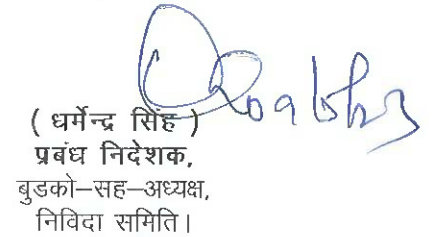 ( धर्मेन्द्र सिंह )
प्रबंध निदेशक,
बुडको–सह–अध्यक्ष,
निविदा समिति।